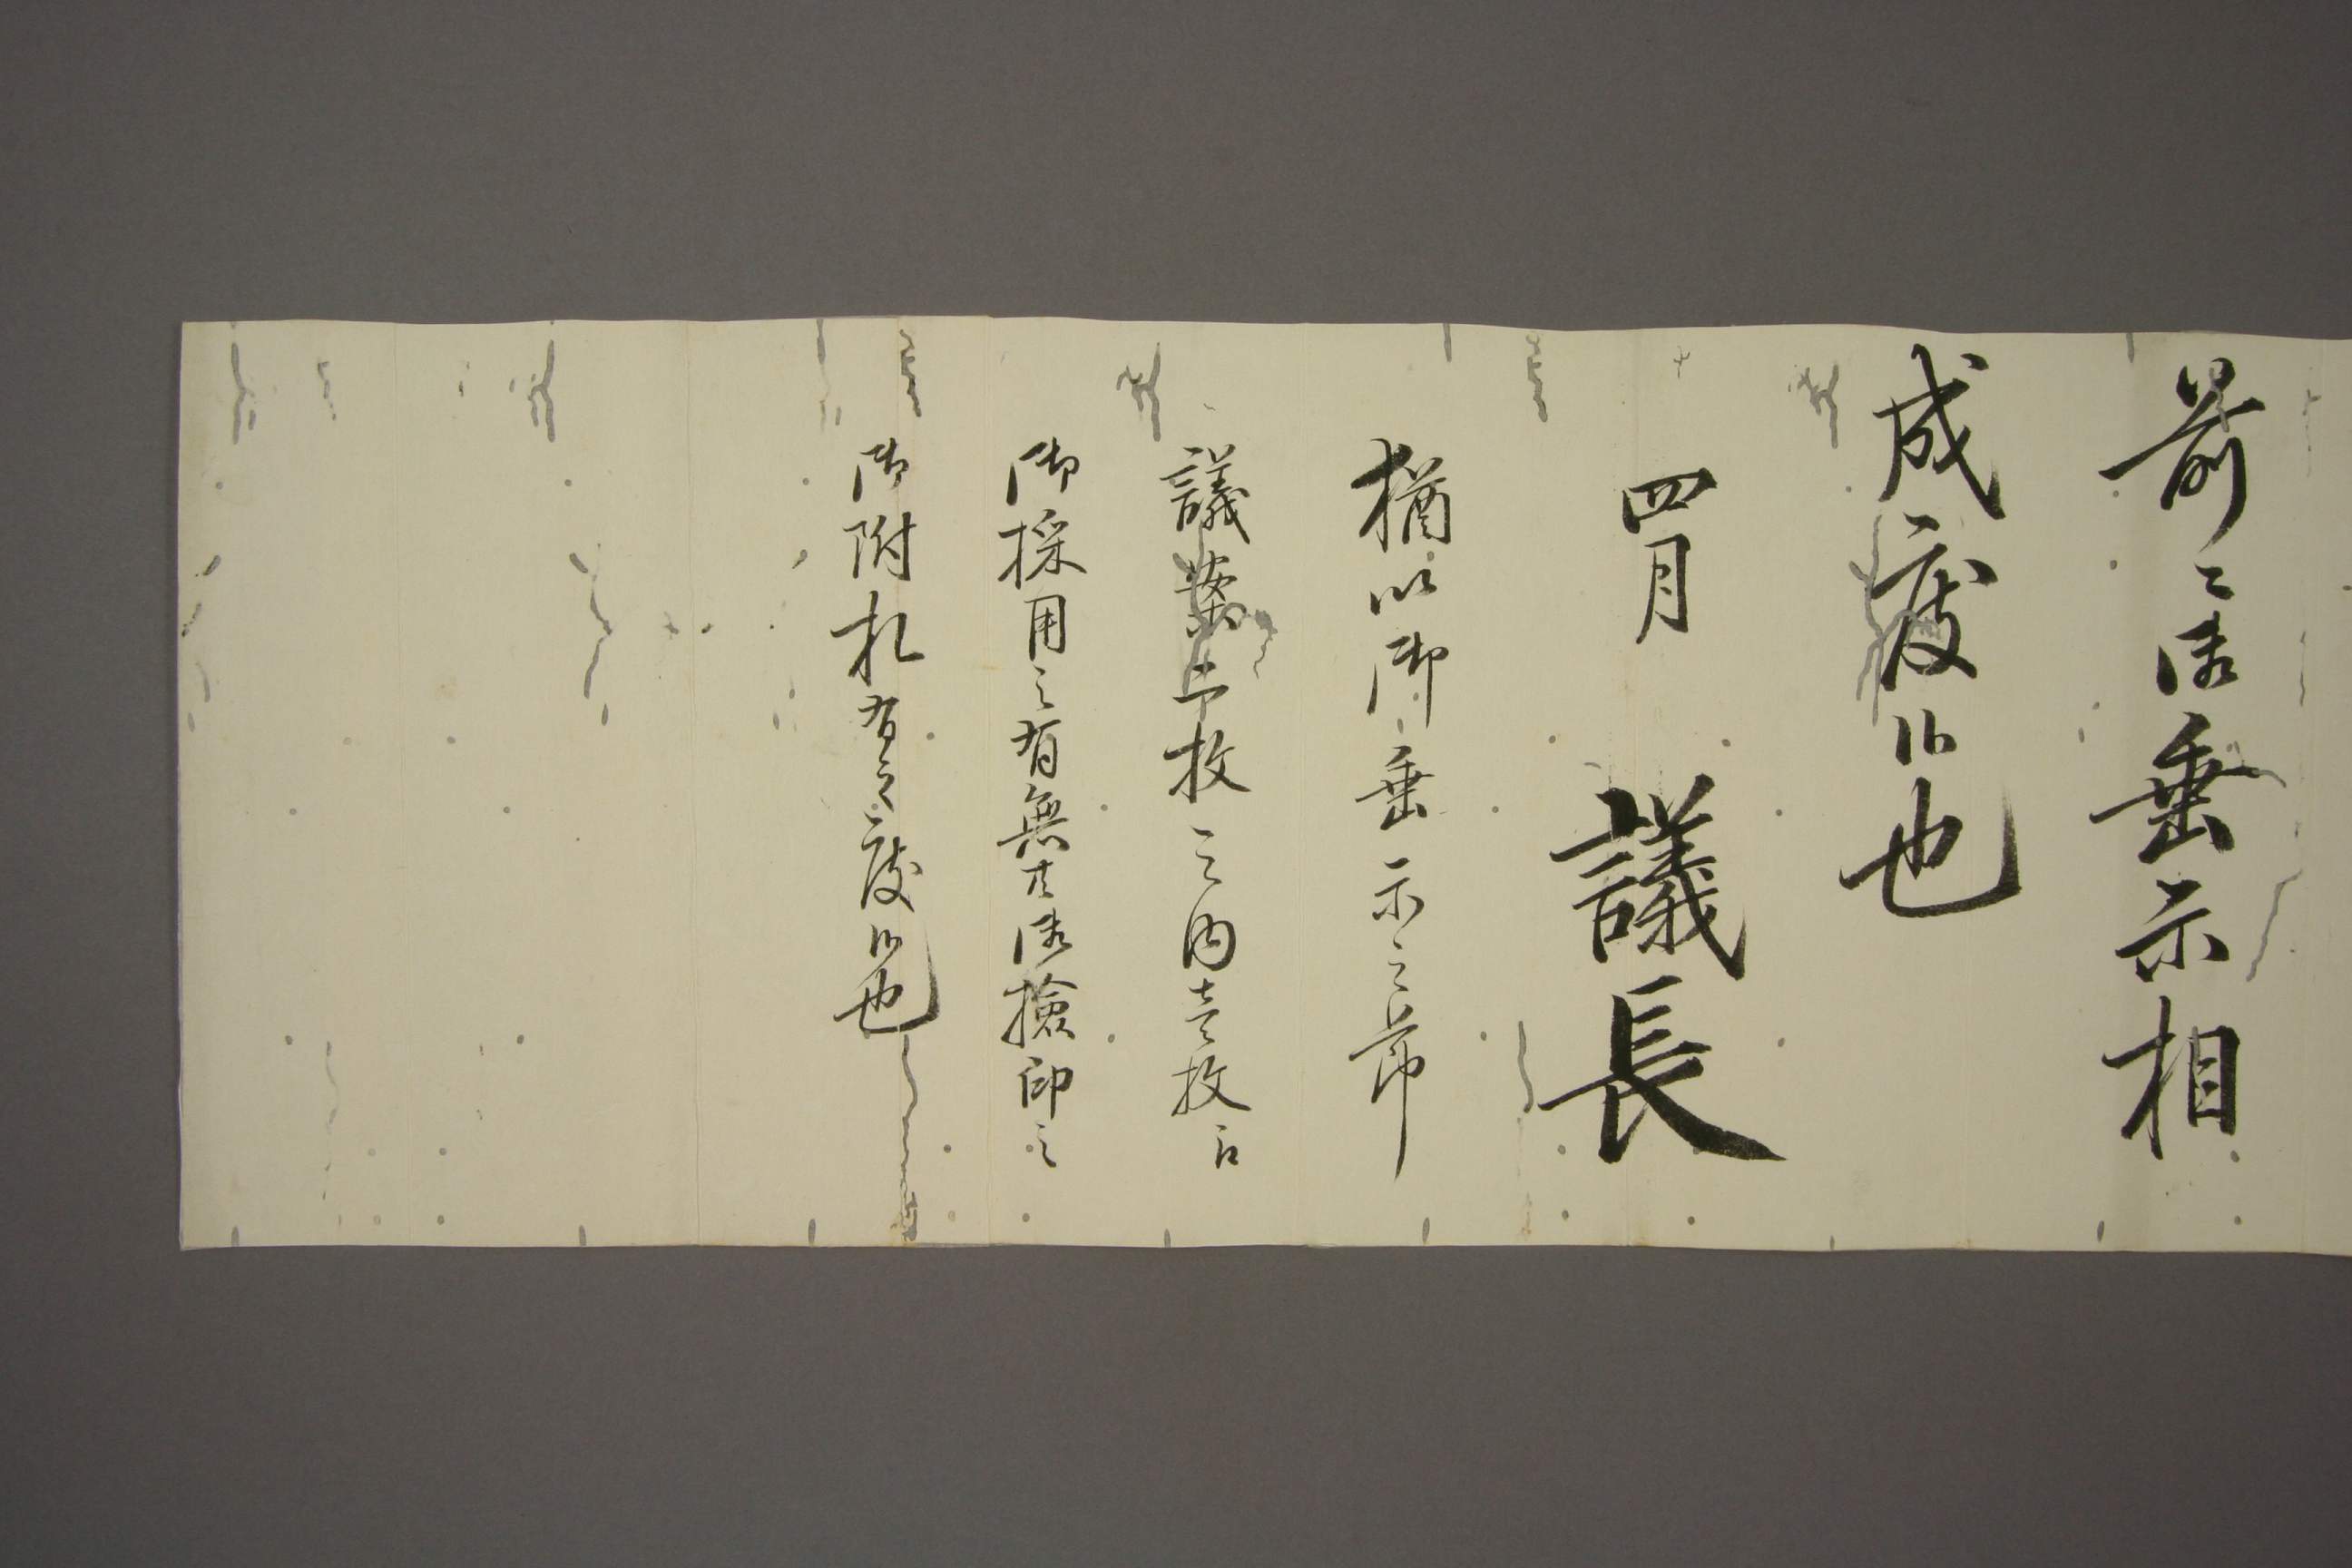 前ニ御垂示相
成度候也
四月　議長
猶以御垂示之節
議案弐枚之内壱枚江
御採用之有無并御撿印之
御附札有之度候也